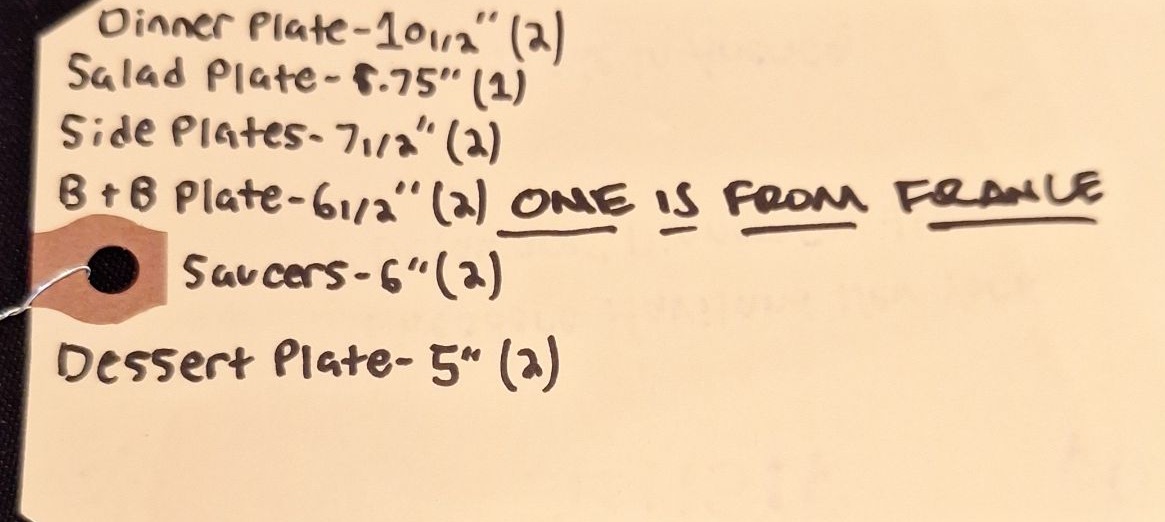 Dinner Plate-10 1/2" (2)
Salad Plate-8.75" (1)
Side Plates-7 1/2" (2)
B + B Plate-6 1/2" (2) ONE IS FROM FRANCE
Saucers-6" (2)
Dessert Plate-5" (2)